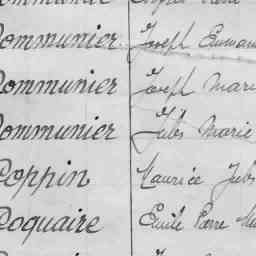 ommunier Joseph Emman
ommunier Joseph Mari
ommunier Jules Marie
Coppin Maurice Jules
Coquaire Emile Pierre